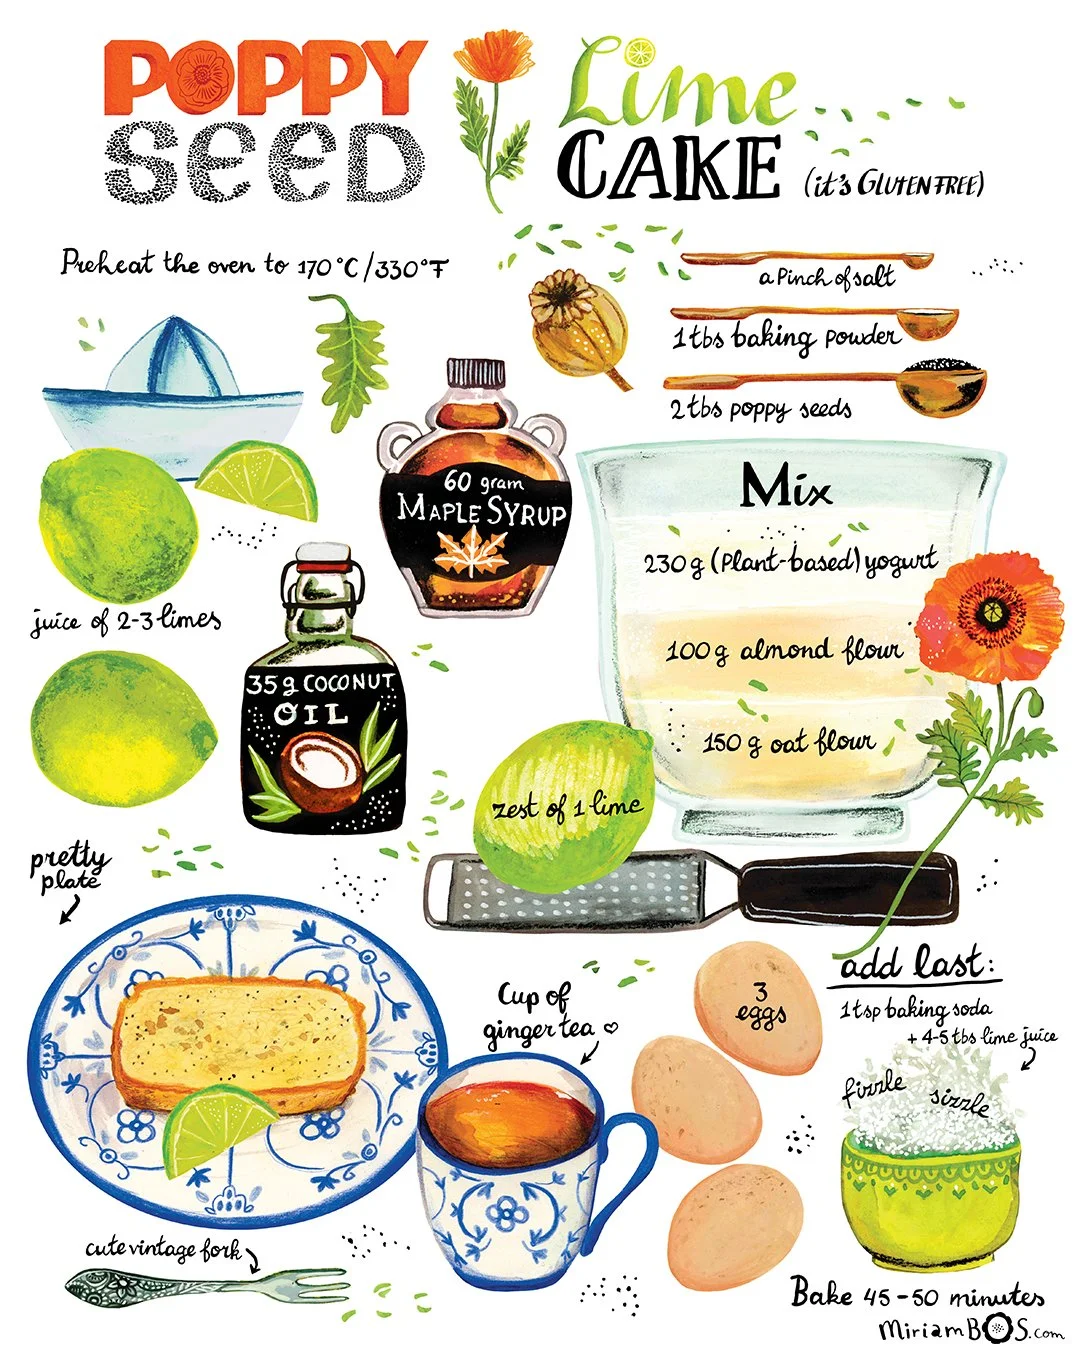 POPPY
SEED
Lime
CAKE (it's GLUTEN FREE)
Preheat the oven to 170°C/330°F
a Pinch of salt
1 tbs baking powder
2 tbs poppy seeds
60 gram
MAPLE SYRUP
juice of 2-3 limes
35 g COCONUT
OIL
Mix
230 g (Plant-based) yogurt
100 g almond flour
150 g oat flour
zest of 1 lime
pretty
plate
Cup of
ginger tea ♡
3
eggs
add last:
1 tsp baking soda
+ 4-5 tbs lime juice
fizzle sizzle
cute vintage fork
Bake 45-50 minutes
MiriamBOS.com